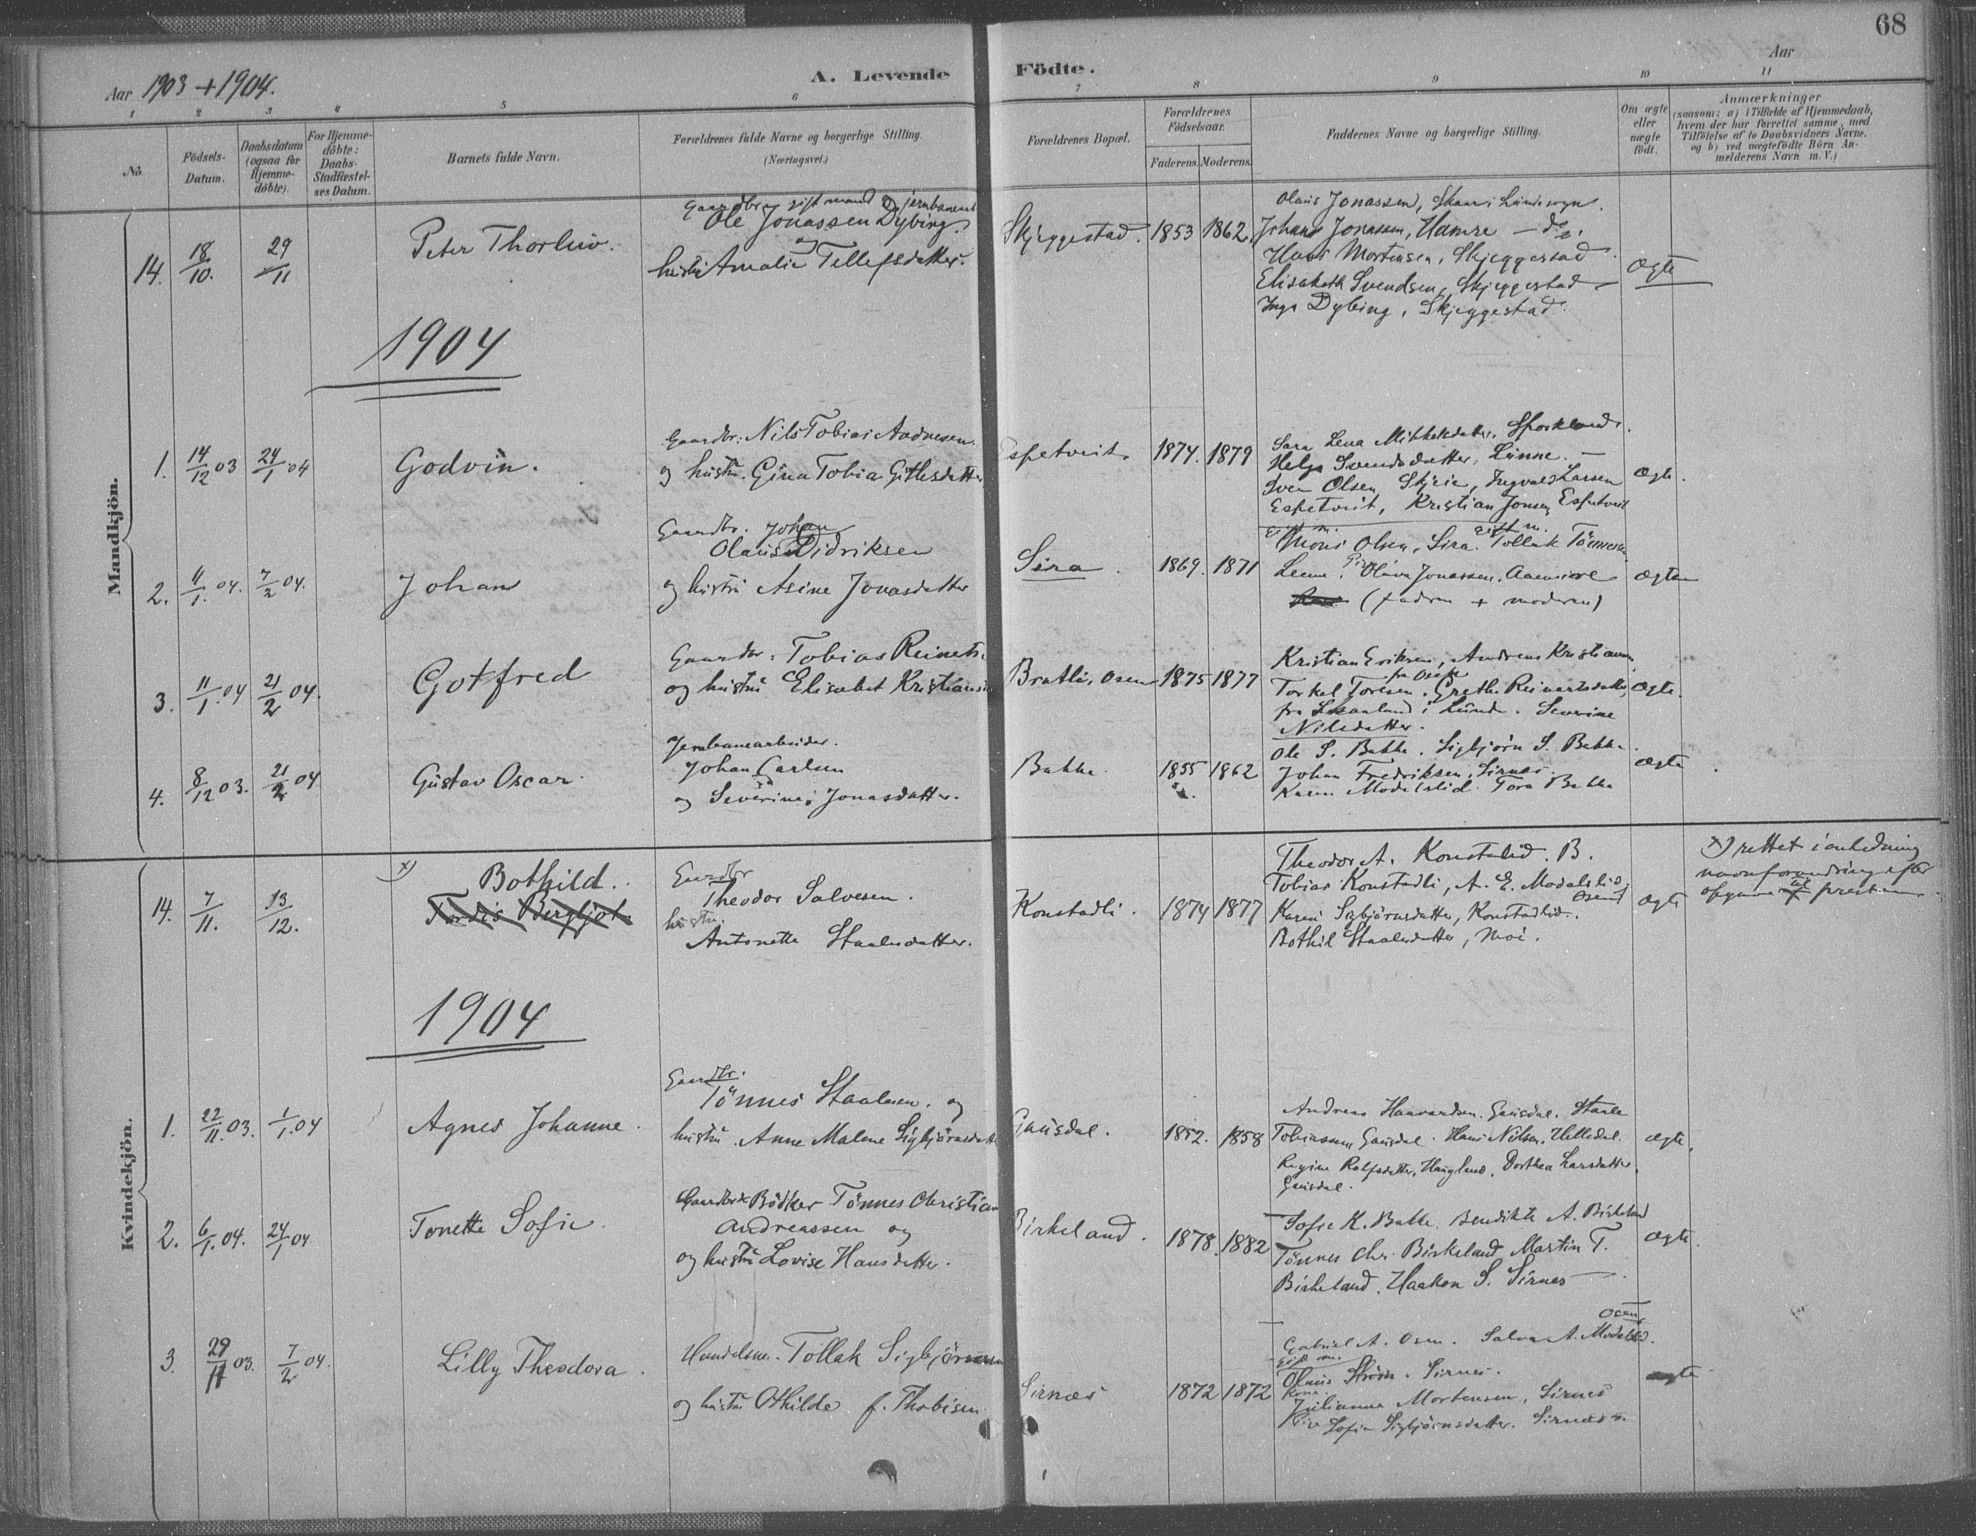 68
Aar 1903 + 1904.
A. Levende Födte.
Aar
1 2 3 4 5 6 7 8 9 10 11
No.
Födsels-Datum.
Daabsdatum (ogsaa for Hjemme-döbte).
For Hjemme-döbte: Daabs-Stadfæstel-ses Datum.
Barnets fulde Navn.
Forældrenes fulde Navne og borgerlige Stilling.
(Næringsvei.)
Forældrenes Bopæl.
Forældrenes Födselsaar.
Faderens. Moderens.
Faddernes Navne og borgerlige Stilling.
Om ægte eller uægte födt.
Anmærkninger
(saasom: a) i Tilfælde af Hjemmedaab, hvem der har forrettet samme, med Tilföielse af to Daabsvidners Navne, og b) ved uægtefödte Börn An-melderens Navn m. V.)
Mandkjön.
14. 18/10. 29/11 Peter Thorleiv.
Ole Jonassen Dybing.
og
hustru Amalie Tellefsdatter.
Skjeggestad. 1853 1862
Olaus Jonassen, Skaar i Lunde sogn.
Johans Jonassen, Hamre — do.
Hans Mortensen, Skjeggestad.
Elisabeth Svendsen, Skjeggestad
Inga Dybing, Skjeggestad.
Ægte
1904
1. 14/12 03 24/1 04 Godvin.
Gaardbr: Nils Tobias Aadnesen
og hustru. Gina Tobia Gitlesdatter
Espetveit 1874. 1879
Sara Lena Mikkelsdatter,
Helga Svendsdatter, Lunne. —
Sven Olsen, Ingvald Larsen
Espetveit, Kristian Jonsen Espetveit
ægte.
2. 11/1. 04. 7/2 04. Johan
Gaardbr. Johan
Olaus Didriksen
og hustru Asine Jonasdatter
Sira. 1869. 1871
Moni Olsen, Sira. Tollak Tönnesen
Olava Jonassen,
(fadren + moderen)
ægte
3. 11/1. 04 21/2 04. Gotfred
Gaardbr: Tobias Reinerts.
og hustru Elisabet Kristians
Bratli, Osen 1875 1877
Kristian Eriksen, Andreas Kristiansen
fra Osen
Torkel Toresen, Grethe Reinertsdatter
fra Skaaland i Lund. Severine
Nilsdatter.
ægte.
4. 8/12 03. 21/2 04 Gustav Oscar.
Jernbanearbeider.
Johan Carlsen
og Severine Jonasdatter.
Bakke. 1855 1862
Ole S. Bakke. Sigbjörn S. Bakke.
Johan Fredriksen, Sirnes.
Karen Modalslid. Tora Bakke
ægte
Kvindekjön.
14. 7/11. 13/12. x) Bothild.
Tordis Bergljot
Gaardbr
Theodor Salvesen.
hustru.
Antonette Staalesdatter.
Konstadli. 1874 1877
Theodor A. Konstalid. B.
Tobias Konstadli, A. E. Modalslid,
Osen
Karen Sigbjörnsdatter, Konstadlid.
Bothil Staalesdatter, Moi.
ægte
x) rettet i anledning
navneforandring efter
opgave til presten.
1904
1. 22/11. 03. 1/1. 04 Agnes Johanne.
Gaardbr.
Tönnes Staalesen. og
hustru. Anne Malene Sigbjörnsdatter
Gausdal. 1852. 1858
Andreas Haavardsen. Gausdal. Staale
Tobiassen Gausdal. Hans Nilsen. Helledal.
Regine Rolfsdatter, Haugland, Dorthea Larsdatter,
Gausdal.
ægte,
2. 6/1. 04. 24/1 04 Tonette Sofie.
Gaardbr & Bödker Tönnes Christian
Andreassen og
og hustru Lovise Hansdatter.
Birkeland. 1878. 1882
Sofie K. Bakke. Bendikte A. Birkeland
Tönnes Chr. Birkeland Martin T.
Birkeland. Haakon S. Sirnes —
ægte.
3. 29/11 03. 7/2 04. Lilly Theodora.
Handelsm. Tollak Sigbjörnsen
og hustru Othilde f. Thobisen.
Sirnæs 1872 1872
Osen
Gabriel A. Osen. Salve A. Modalslid.
Gift m.
Olaus Ström. Sirnes.
Kone.
Julianne Mortensen, Sirnes
Sofie Sigbjörnsdatter. Sirnæs.
ægte